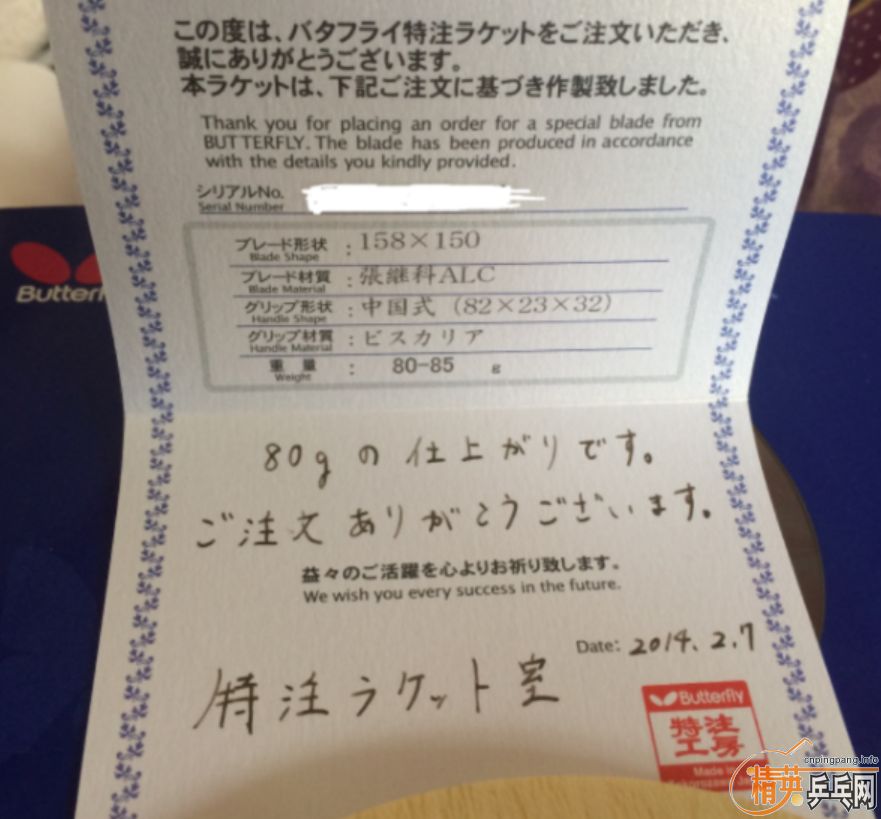 この度は、バタフライ特注ラケットをご注文いただき、
誠にありがとうございます。
本ラケットは、下記ご注文に基づき作製致しました。
Thank you for placing an order for a special blade from
BUTTERFLY. The blade has been produced in accordance
with the details you kindly provided.
シリアルNo.
Serial Number
ブレード形状 : 158×150
Blade Shape
ブレード材質 : 張継科ALC
Blade Material
グリップ形状 : 中国式 (82×23×32)
Handle Shape
グリップ材質 : ビスカリア
Handle Material
重量 : 80-85 g
Weight
Butterf
80gの仕上がりです。
ご注文ありがとうございます。
益々のご活躍を心よりお祈り致します。
We wish you every success in the future.
Date: 2014.2.7
特注ラケット室
Butterfly
特注
工房
Made in
cnpingpang.info
精英乒乓网